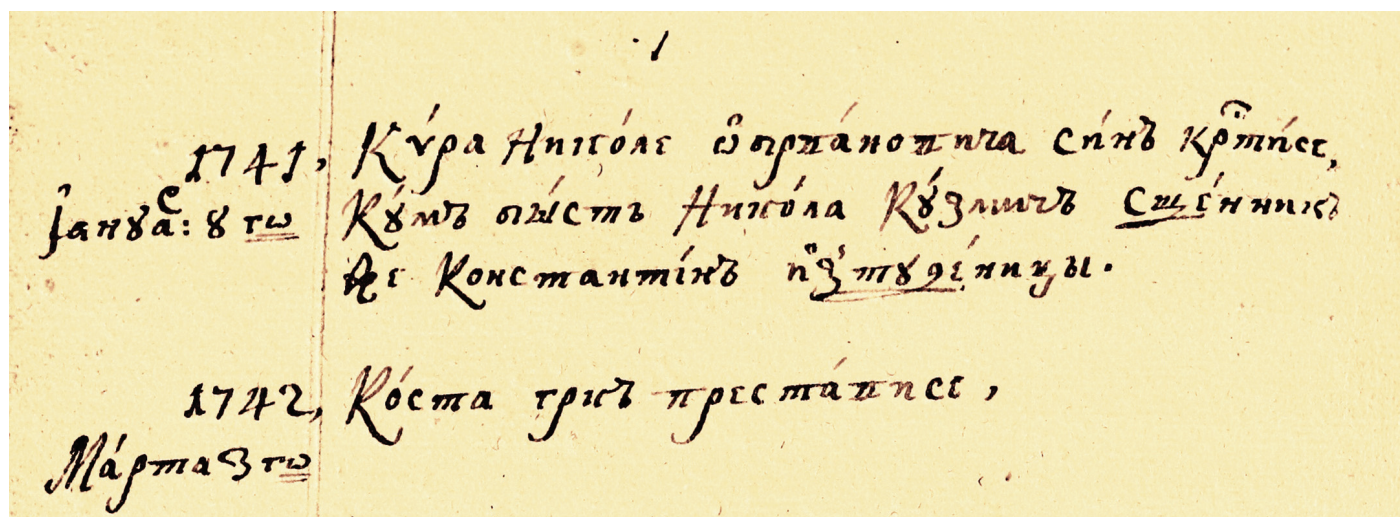 1
1741, Кѵ́ра Николе ѡ҆бра́новича си́нъ крⷭ҇ти́се,
І҆ануаⷭ: 8 гѡ Кꙋ́мъ бы́сть Нико́ла Кꙋ́змичъ сще́нникъ
же Константі́нъ и҆з̾ Стꙋде́ницы.
1742, Ко́ста гркъ преста́висе,
Ма́рта 3 гѡ